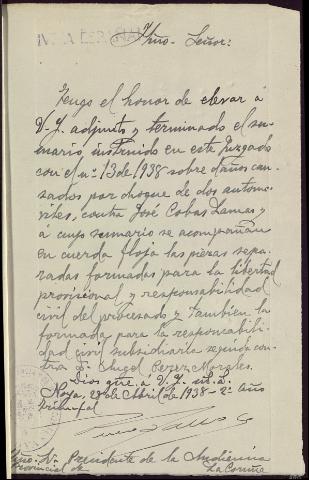 Ilmo. Señor:
Tengo el honor de elevar á
V. I. adjunto y terminado el su-
mario instruido en este Juzgado
con el nº 13 de 1938 sobre daños cau-
sados por choque de dos automo-
viles, contra José Cobas Lamas y
á cuyo sumario se acompañan
en cuerda floja las piezas sepa-
radas formadas para la libertad
provisional y responsabilidad
civil del procesado y tambien la
formada para la responsabili-
dad civil subsidiaria seguida con-
tra D. Angel Perez Morales.
Dios gue. á V. I. m. a.
Noya, 28 de Abril de 1938 - 2º año
triunfal
Ilmo. Sr. Presidente de la Audiencia
Provincial de La Coruña